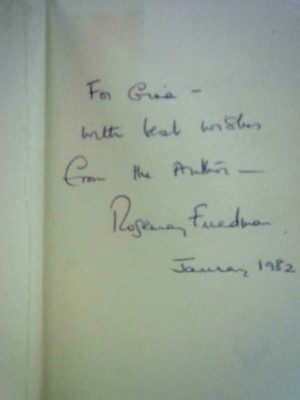 For Gina -
with best wishes
from the Author —
Rosemary Friedman.
January 1982